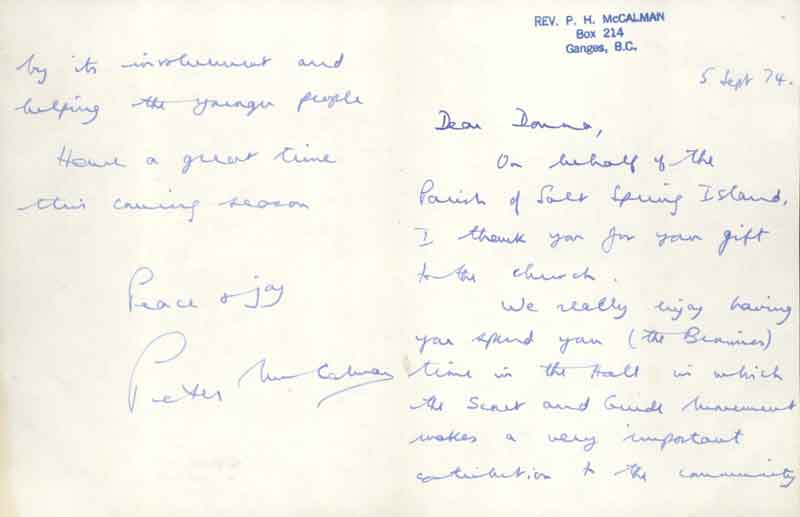 REV. P. H. McCALMAN
Box 214
Ganges, B.C.
5 Sept 74.
Dear Donna,
On behalf of the
Parish of Salt Spring Island,
I thank you for your gift
to the church.
We really enjoy having
you spend your (the Brownies)
time in the Hall in which
the Scout and Guide Movement
makes a very important
contribution to the community
by its involvement and
helping the younger people
Have a great time
this coming season
Peace & joy
Peter McCalman